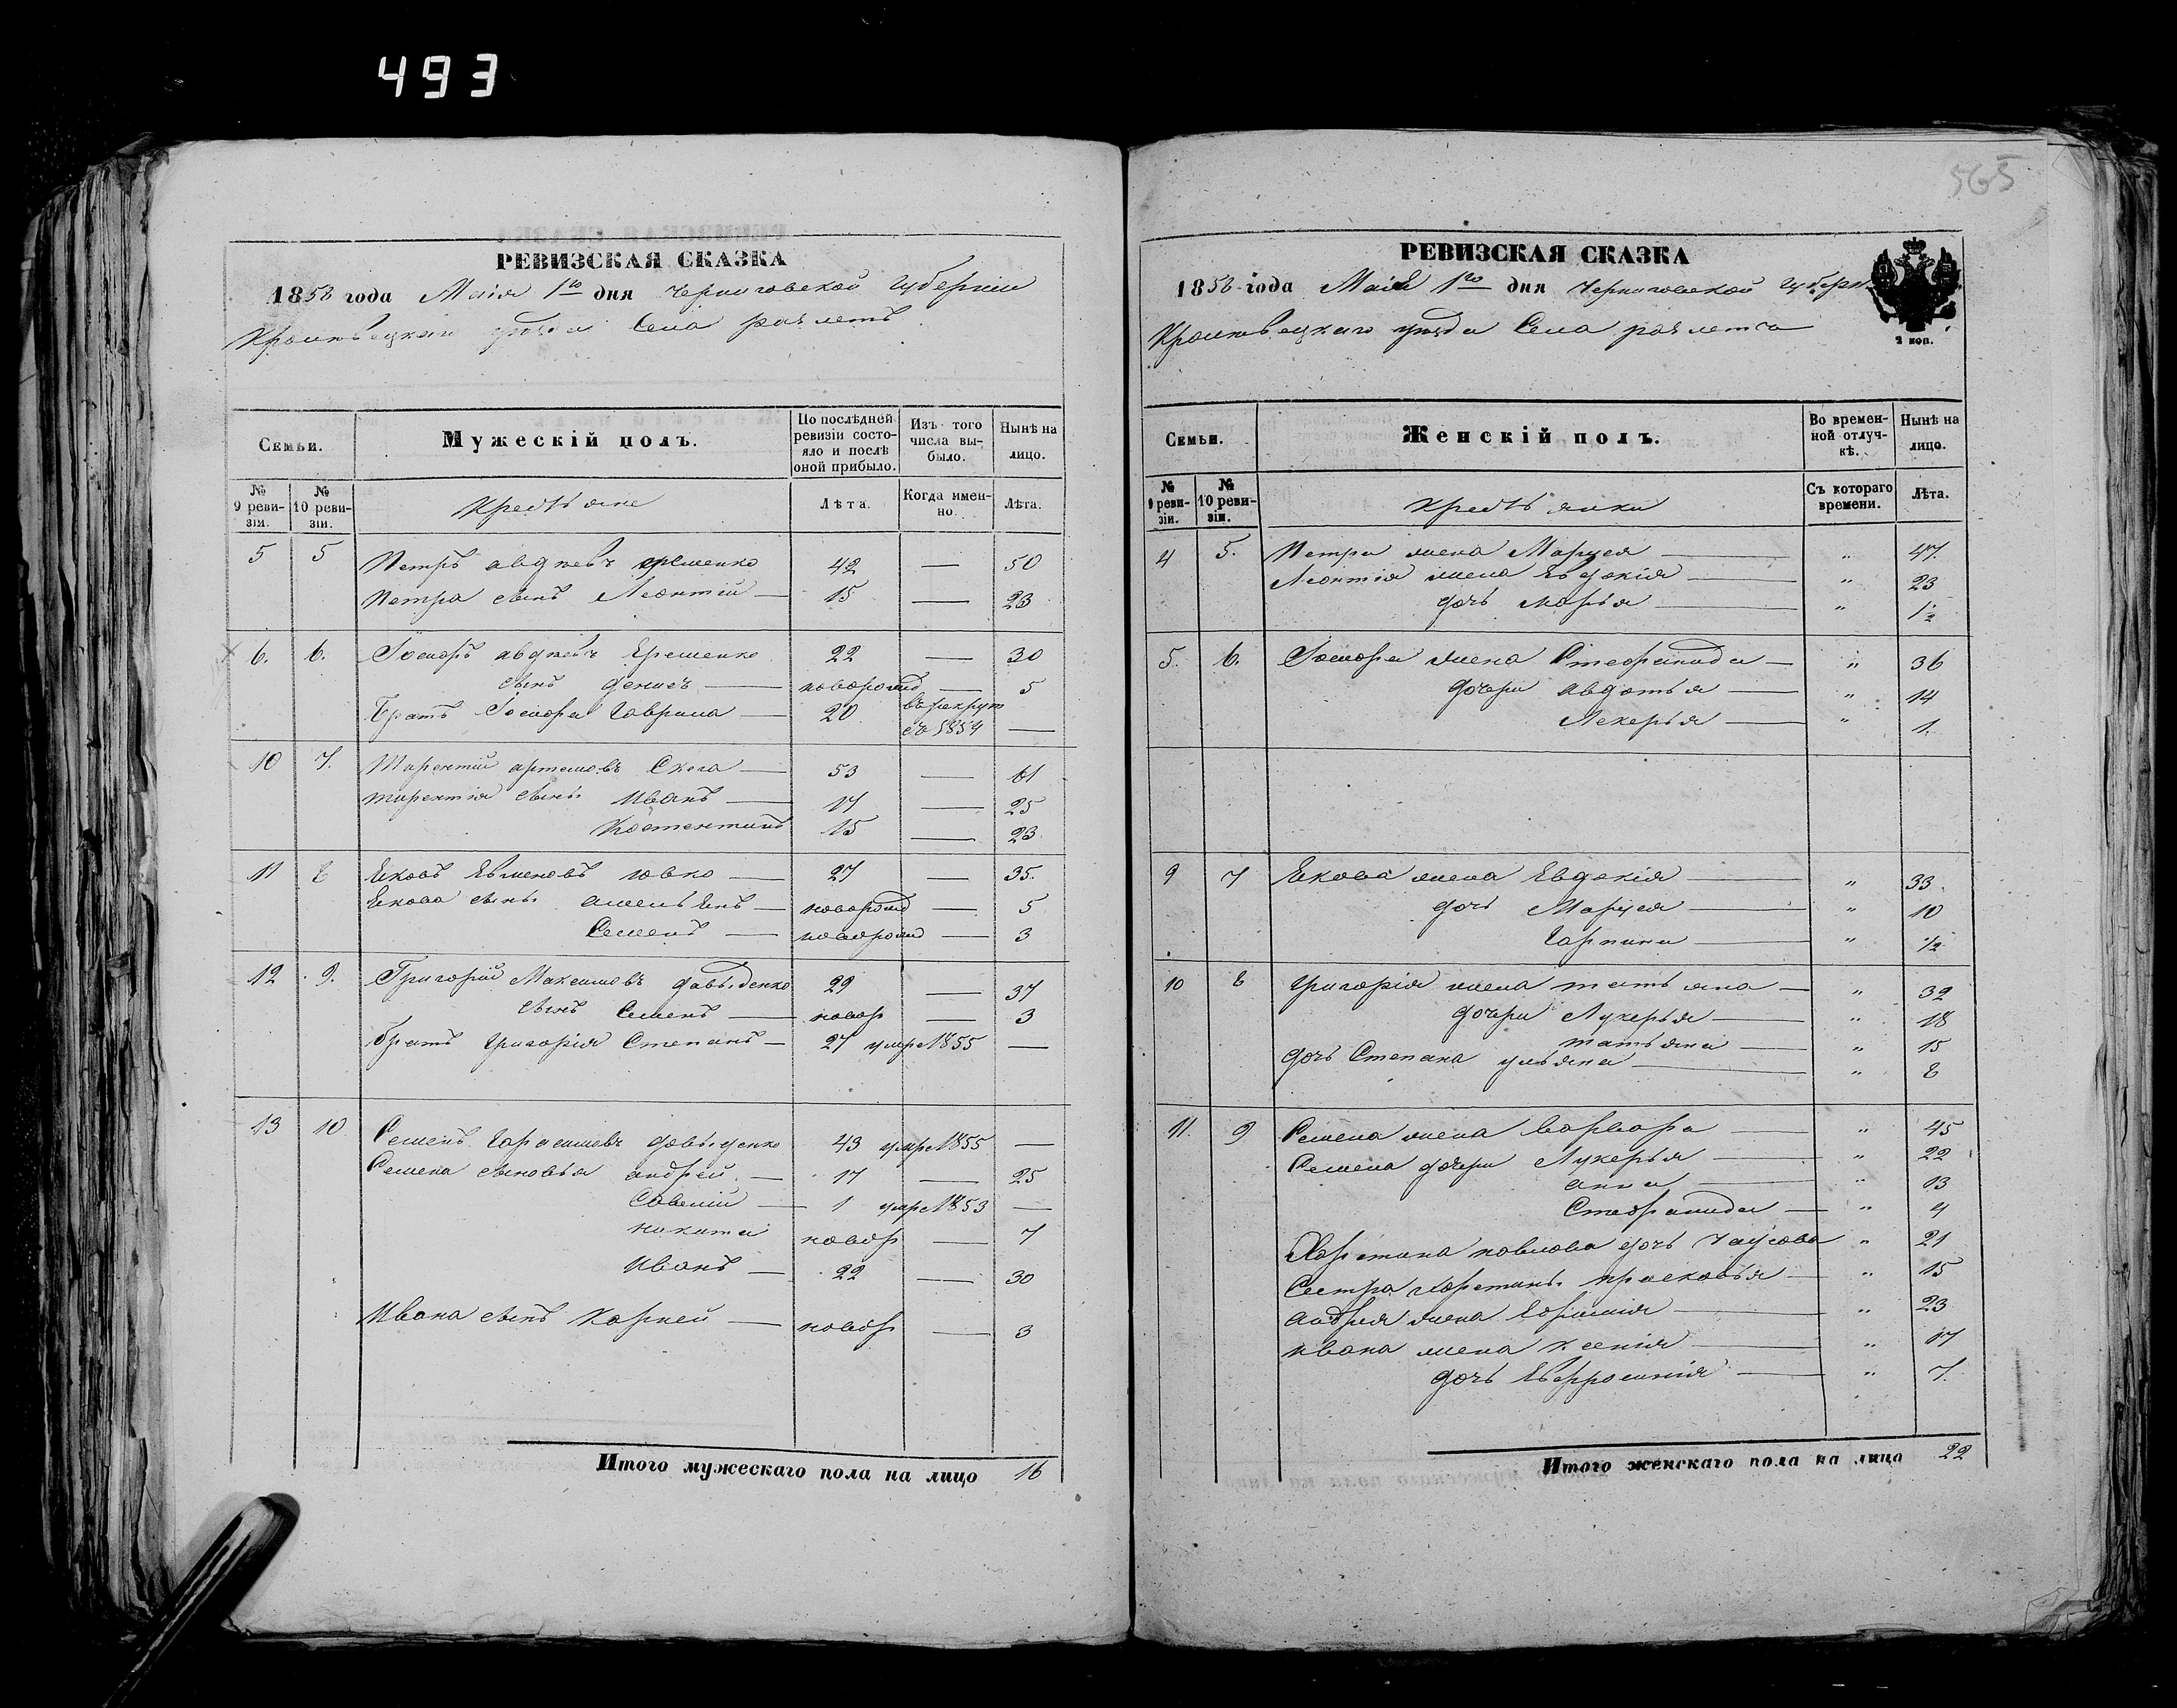 493
565
РЕВИЗСКАЯ СКАЗКА
1858 года Маія 1го дня Черниговской Губерніи
Кролевецкаго уѣзда Села
Семьи.
Мужескій полъ.
По послѣдней ревизіи состояло и послѣ оной прибыло.
Изъ того числа выбыло.
Нынѣ на лицо.
№ 9 ревизіи.
№ 10 ревизіи.
Крестьяне
Лѣта.
Когда именно.
Лѣта.
5 5 Петръ авдѣевъ Ерешенко 42 — 50
Петра сынъ Леонтій — 15 — 23
6. 6. Іосифъ авдѣевъ Ерешенко 22 — 30
сынъ денисъ — новорожд — 5
Братъ Іосифа Гаврила — 20 въ рекрут
съ 1854 —
10 7. Терентій артемовъ — 53 — 61
терентія сынъ Иванъ — 17 — 25
Костентинъ 15 — 23.
11 8 Яковъ ЕвменовъЮвко — 27 — 35.
Якова сынъ — новорожд — 5
Семенъ — новорожд — 3
12 9. Григорій Максимовъ давыденко 29 — 37
сынъ Семенъ — новор — 3
братъ Григорія Степанъ — 27 умре 1855 —
13 10 Семенъ Герасимовъ давыденко 43 умре 1855 —
Семена сыновья андрей — 17 — 25
Савелій — 1 умре 1853 —
никита новор — 7
Иванъ — 22 — 30
Ивана сынъ Корней — новор — 3
Итого мужескаго пола на лицо 16
РЕВИЗСКАЯ СКАЗКА
1858 года Маія 1го дня Черниговской Губерн
2 коп.
Кролевецкаго уѣзда Села
Семьи.
Женскій полъ.
Во временной отлучкѣ.
Нынѣ на лицо.
№ 9 ревизіи.
№ 10 ревизіи.
Крестьянки
Съ котораго времени.
Лѣта.
4 5. Петра жена Марѳа — " 47.
Леонтія жена Евдокія — " 23
дочь Марья — " 1/2
5. 6. Іосифа жена Стефанида — " 36
дочери авдотья — " 14
Лекерья — " 1.
9 7 Якова жена Евдокія — " 33.
дочь Марѳа — " 10
Гарпина — " 1/2
10 8 Григорія жена татьяна — " 32
дочери Лукерья — " 18
татьяна — " 15
дочь Степана ульяна — " 8
11. 9 Семена жена варвара — " 45
Семена дочери Лукерья — " 22
анна — " 13
Стефанида — " 4
Хористина павлова дочь " 21
Сестра Хористины прасковья — " 15
андрея жена — " 23
ивана жена ксенія — " 17
дочь Евфросинія — " 7.
Итого женскаго пола на лицо 22